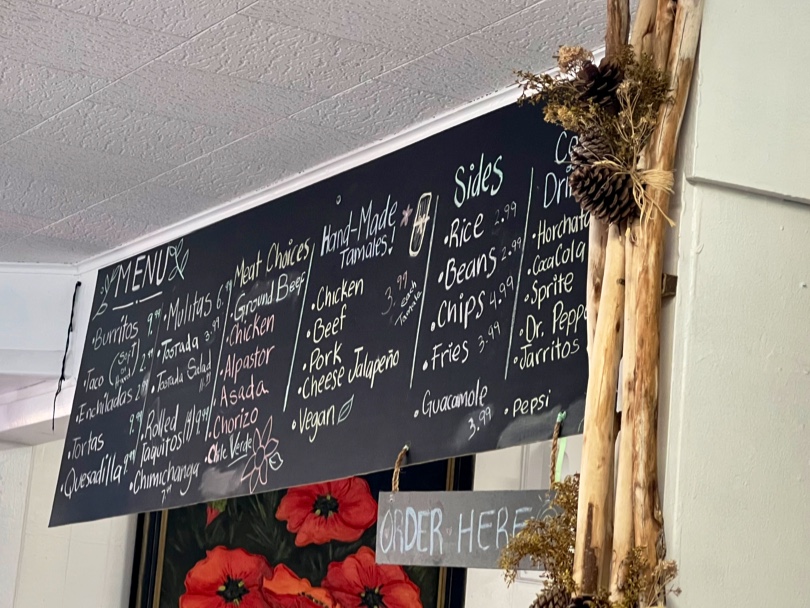 MENU
• Burritos 9.99
• Taco (Soft or Hard) 2.99
• Enchiladas 2.99
• Tortas 9.99
• Quesadilla
• Mulitas 6.99
• Tostada 3.99
• Tostada Salad
• Rolled Taquitos (4) 2.99
• Chimichanga
Meat Choices
• Ground Beef
• Chicken
• Alpastor
• Asada
• Chorizo
• Chile Verde
Hand-Made
Tamales!
• Chicken
• Beef
• Pork
• Cheese Jalapeño
• Vegan
3.99
each
Tamale
Sides
• Rice 2.99
• Beans 2.99
• Chips 4.99
• Fries 3.99
• Guacamole
3.99
Co
Dri
• Horchata
• CocaCola
• Sprite
• Dr. Peppe
• Jarritos
• Pepsi
ORDER HERE